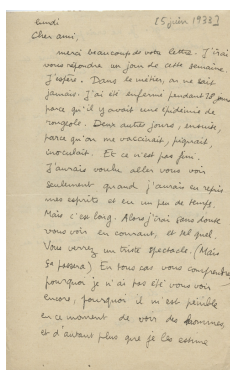 lundi [5 juin 1933]
Cher ami,
merci beaucoup de votre lettre. J'irai
vous répondre un jour de cette semaine
J'espère. Dans le métier, on ne sait
jamais. J'ai été enfermé pendant 18 jours
parce qu'il y avait une épidémie de
rougeole. Deux autres jours, ensuite,
parce qu'on me vaccinait, piquait,
inoculait. Et ce n'est pas fini.
J'aurais voulu aller vous voir
seulement quand j'aurais eu repris
mes esprits et eu un peu de temps.
Mais c'est long. Alors j'irai sans doute
vous voir en courant, et tel quel.
Vous verrez un triste spectacle. (Mais
ça passera) En tous cas vous comprendrez
pourquoi je n'ai pas été vous voir
encore, pourquoi il m'est pénible
en ce moment de voir des hommes,
et d'autant plus que je les estime